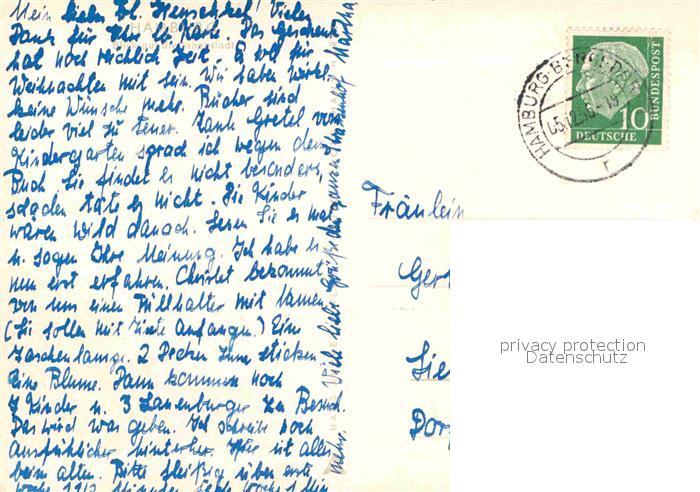 Mein liebes Frl. Henschkel! Vielen
Dank für Ihre lb. Karte. Das Geschenk
hat noch reichlich Zeit. Es soll für
Weihnachten mit sein. Wir haben wirkl.
keine Wünsche mehr. Bücher sind
leider viel zu teuer. Tante Gretel vom
Kindergarten sprach ich wegen dem
Buch. Sie findet es nicht besonders,
schaden täte es nicht. Die Kinder
waren wild danach. Lesen Sie es mal
u. sagen Ihre Meinung. Ich habe es
nun erst erfahren. Christel bekommt
von uns einen Füllhalter mit Namen.
(Sie sollen mit Tinte anfangen.) Eine
Taschenlampe. 2 Decken zum sticken.
Eine Blume. Dann kommen noch
7 Kinder u. 3 Lauenburger zu Besuch.
Das wird was geben. Ich schreibe noch
ausführlicher hinterher. Hier ist alles
beim alten. Bitte fleißig üben erste
Viele liebe Grüße der ganzen Martha
mehr.
HAMBURG
HAMBURG-BERGEDORF
DEUTSCHE
BUNDESPOST
10
Fräulein
Ger
Sie
Dor
privacy protection
Datenschutz